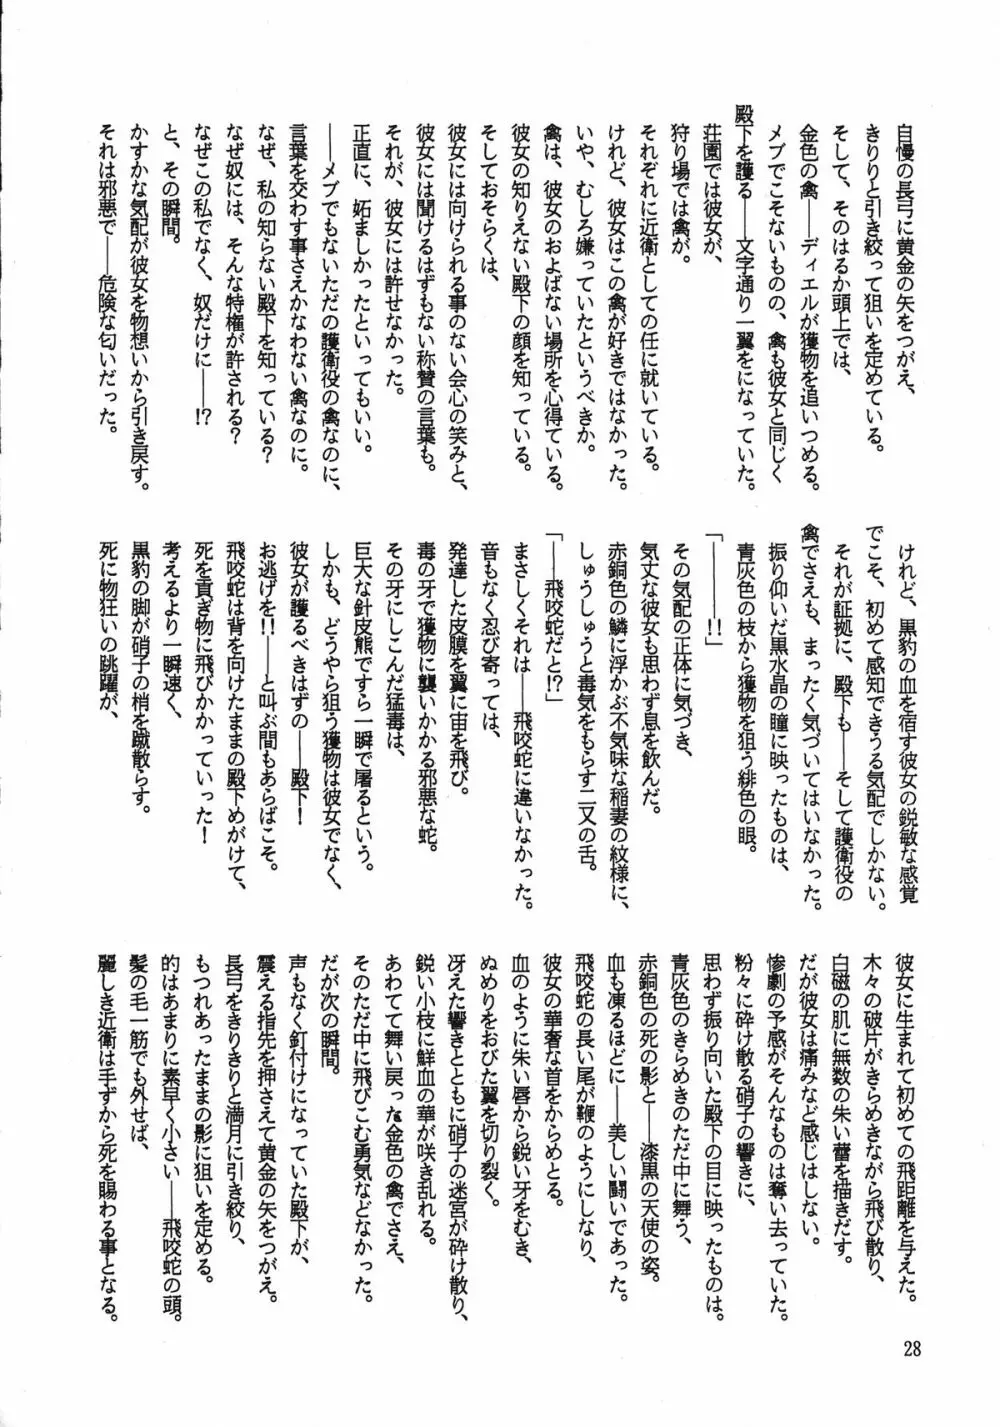 自慢の長弓に黄金の矢をつがえ、
きりりと引き絞って狙いを定めている。
そして、そのはるか頭上では、
金色の禽――ディエルが獲物を追いつめる。
メブでこそないものの、禽も彼女と同じく
殿下を護る――文字通り一翼をになっていた。
荘園では彼女が、
狩り場では禽が。
それぞれに近衛としての任に就いている。
けれど、彼女はこの禽が好きではなかった。
いや、むしろ嫌っていたというべきか。
禽は、彼女のおよばない場所を心得ている。
彼女の知りえない殿下の顔を知っている。
そしておそらくは、
彼女には向けられる事のない会心の笑みと、
彼女には聞けるはずもない称賛の言葉も。
それが、彼女には許せなかった。
正直に、妬ましかったといってもいい。
――メブでもないただの護衛役の禽なのに、
言葉を交わす事さえかなわない禽なのに。
なぜ、私の知らない殿下を知っている?
なぜ奴には、そんな特権が許される?
なぜこの私でなく、奴だけに――!?
と、その瞬間。
かすかな気配が彼女を物想いから引き戻す。
それは邪悪で――危険な匂いだった。
けれど、黒豹の血を宿す彼女の鋭敏な感覚
でこそ、初めて感知できうる気配でしかない。
それが証拠に、殿下も――そして護衛役の
禽でさえも、まったく気づいてはいなかった。
振り仰いだ黒水晶の瞳に映ったものは、
青灰色の枝から獲物を狙う緋色の眼。
「――――!!」
その気配の正体に気づき、
気丈な彼女も思わず息を飲んだ。
赤銅色の鱗に浮かぶ不気味な稲妻の紋様に、
しゅうしゅうと毒気をもらす二又の舌。
「――飛咬蛇だと!?」
まさしくそれは――飛咬蛇に違いなかった。
音もなく忍び寄っては、
発達した皮膜を翼に宙を飛び。
毒の牙で獲物に襲いかかる邪悪な蛇。
その牙にしこんだ猛毒は、
巨大な針皮熊ですら一瞬で屠るという。
しかも、どうやら狙う獲物は彼女でなく、
彼女が護るべきはずの――殿下!
お逃げを!!――と叫ぶ間もあらばこそ。
飛咬蛇は背を向けたままの殿下めがけて、
死を貢ぎ物に飛びかかっていった!
考えるより一瞬速く、
黒豹の脚が硝子の梢を蹴散らす。
死に物狂いの跳躍が、
彼女に生まれて初めての飛距離を与えた。
木々の破片がきらめきながら飛び散り、
白磁の肌に無数の朱い蕾を描きだす。
だが彼女は痛みなど感じはしない。
惨劇の予感がそんなものは奪い去っていた。
粉々に砕け散る硝子の響きに、
思わず振り向いた殿下の目に映ったものは。
青灰色のきらめきのただ中に舞う、
赤銅色の死の影と――漆黒の天使の姿。
血も凍るほどに――美しい闘いであった。
飛咬蛇の長い尾が鞭のようにしなり、
彼女の華奢な首をからめとる。
血のように朱い唇から鋭い牙をむき、
ぬめりをおびた翼を切り裂く。
冴えた響きとともに硝子の迷宮が砕け散り、
鋭い小枝に鮮血の華が咲き乱れる。
あわてて舞い戻った金色の禽でさえ、
そのただ中に飛びこむ勇気などなかった。
だが次の瞬間。
声もなく釘付けになっていた殿下が、
震える指先を押さえて黄金の矢をつがえ。
長弓をきりきりと満月に引き絞り、
もつれあったままの影に狙いを定める。
的はあまりに素早く小さい――飛咬蛇の頭。
髪の毛一筋でも外せば、
麗しき近衛は手ずから死を賜わる事となる。
28